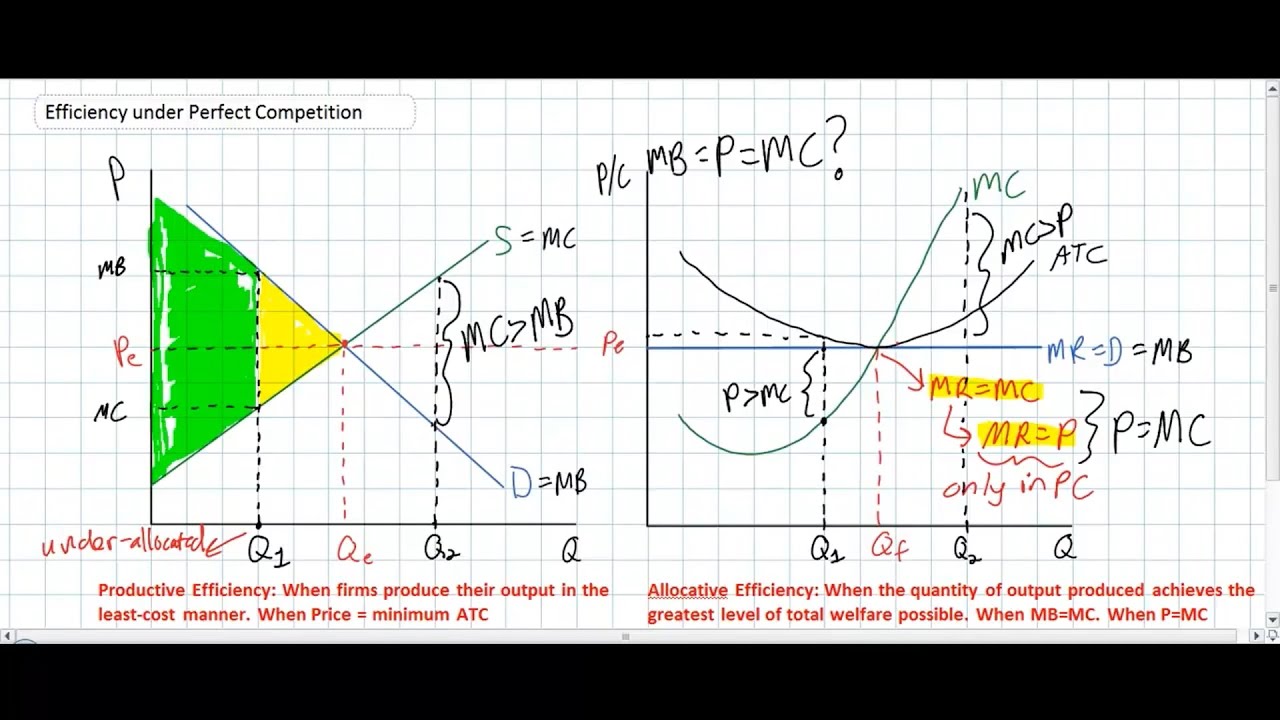 Efficiency under Perfect Competition
P
MB
Pe
MC
S = MC
MC>MB
D = MB
under-allocated
Q1
Qe
Q2
Q
P/C
MB = P = MC?
MC
MC>P
ATC
Pe
MR=D = MB
P>MC
MR=MC
MR=P
P=MC
only in PC
Q1
Qf
Q2
Q
Productive Efficiency: When firms produce their output in the
least-cost manner. When Price = minimum ATC
Allocative Efficiency: When the quantity of output produced achieves the
greatest level of total welfare possible. When MB=MC. When P=MC